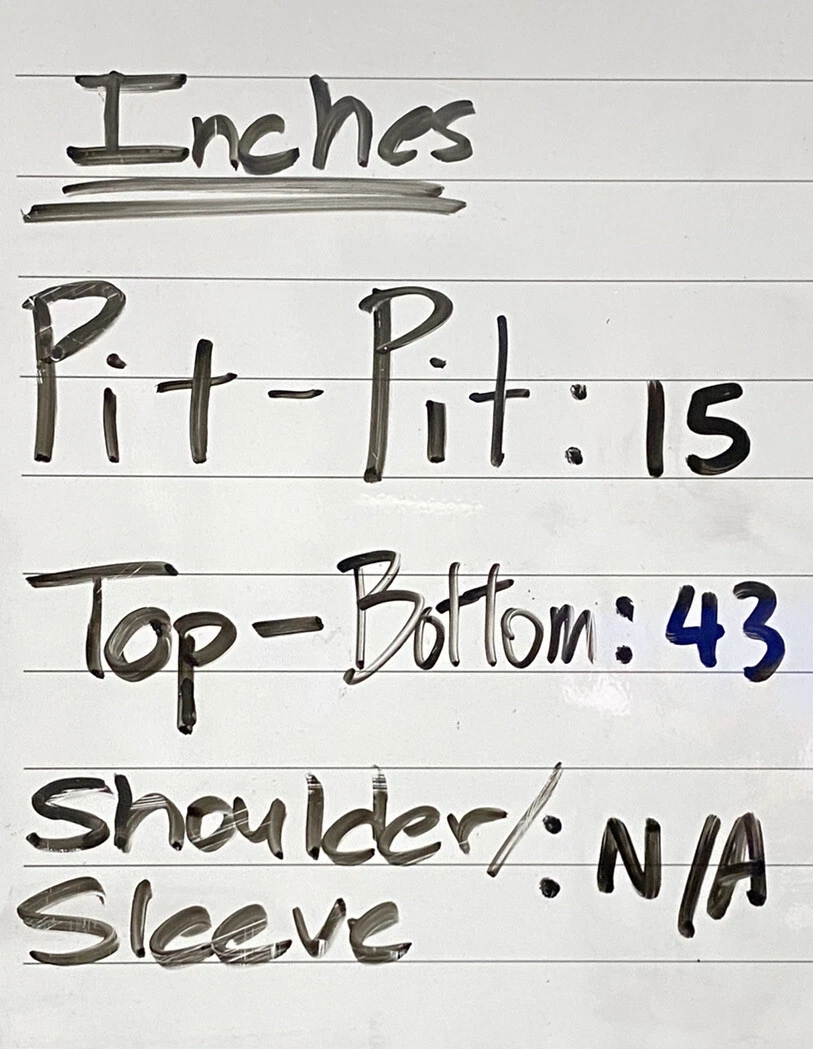 Inches
Pit-Pit: 15
Top-Bottom: 43
Shoulder/: N/A
Sleeve